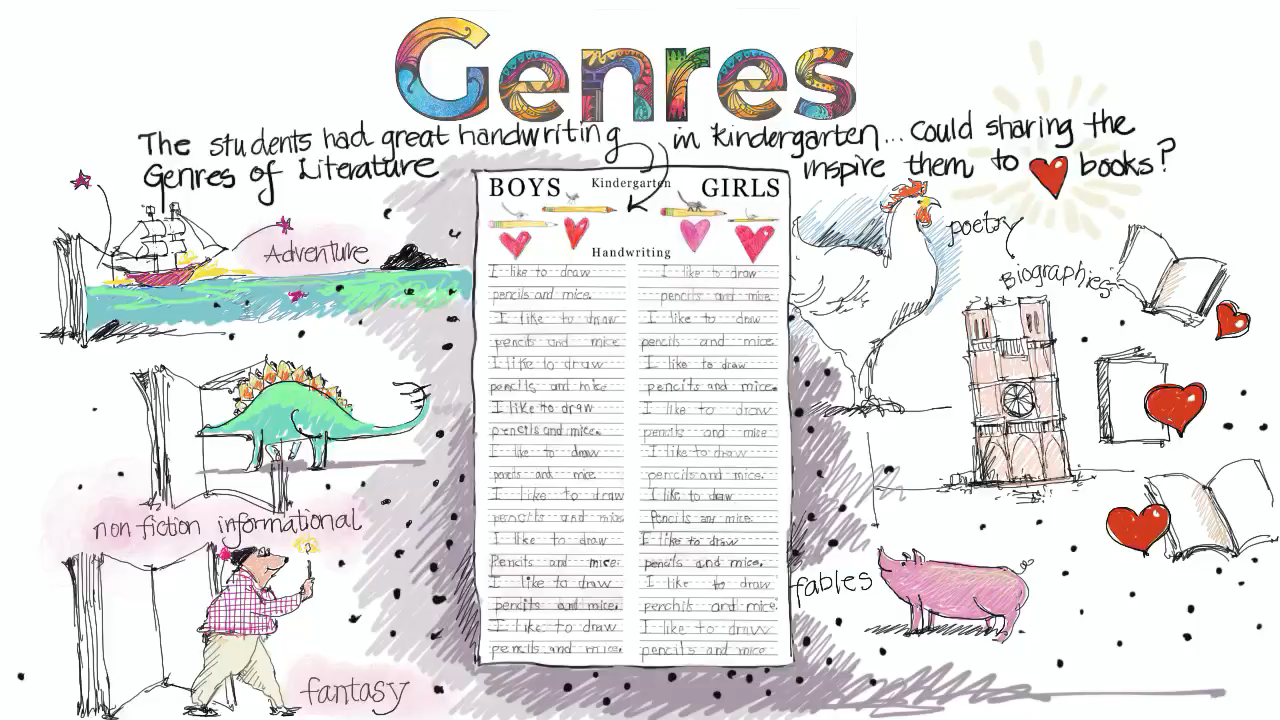 Genres
The students had great handwriting in kindergarten... could sharing the
Genres of Literature inspire them to books?
BOYS Kindergarten GIRLS
Handwriting
I like to draw
pencils and mice.
I like to draw
pencils and mice
I like to draw
pencils and mice
I like to draw
pencils and mice.
I like to draw
pencils and mice.
I like to draw
pencils and mice
I like to draw
Pencils and mice.
I like to draw
pencils and mice.
I like to draw
pencils and mice.
I like to draw
pencils and mice.
I like to draw
pencils and mice.
I like to draw
pencils and mice.
I like to draw
pencils and mice
I like to draw
pencils and mice.
I like to draw
Pencils are mice.
I like to draw
pencils and mice.
I like to draw
penchik and mice
I like to draw
pencils and mice
Adventure
non fiction informational
fantasy
poetry
Biographies
fables